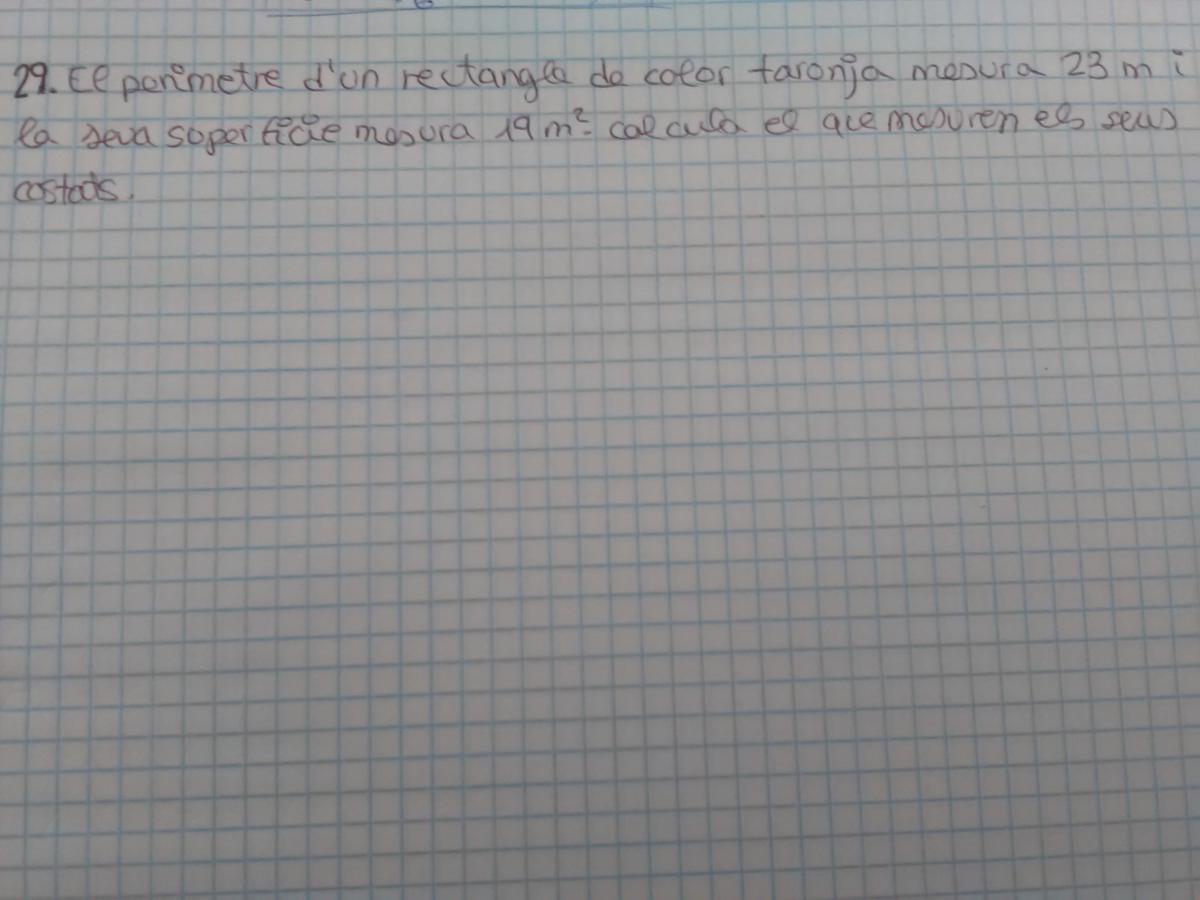 29. El perímetre d'un rectangle de color taronja mesura 23 m i
la seva superfície mesura 19 m². calcula el que mesuren els seus
costats.